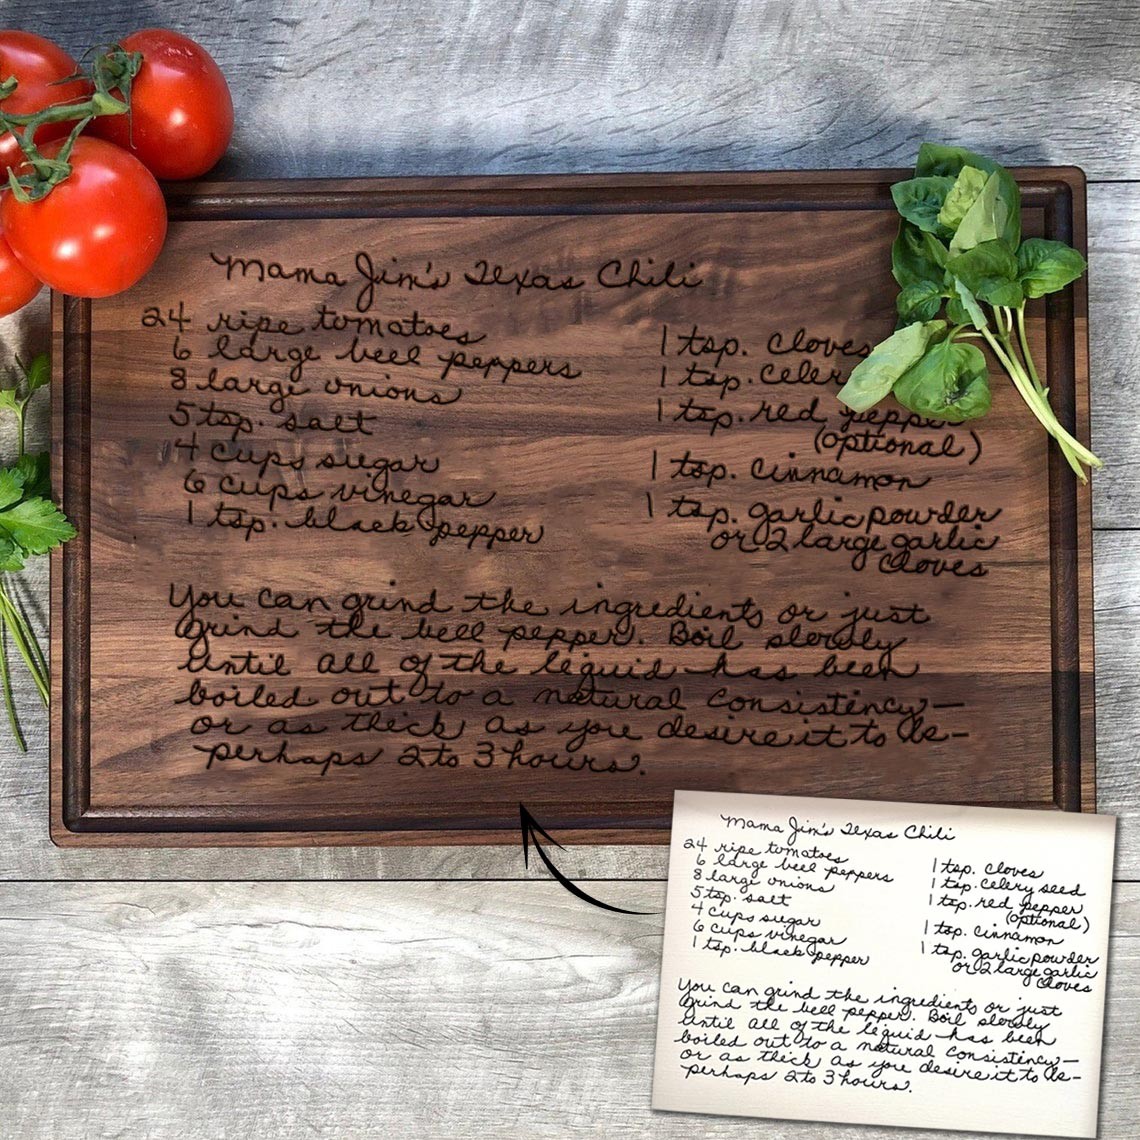 Mama Jim's Texas Chili
24 ripe tomatoes
6 large bell peppers
8 large onions
5 tsp. salt
4 cups sugar
6 cups vinegar
1 tsp. black pepper
1 tsp. cloves
1 tsp. Celer
1 tsp. red pepper
(optional)
1 tsp. cinnamon
1 tsp. garlic powder
or 2 large garlic
cloves
You can grind the ingredients or just
grind the bell pepper. Boil slowly
until all of the liquid has been
boiled out to a natural consistency—
or as thick as you desire it to be—
perhaps 2 to 3 hours.
Mama Jim's Texas Chili
24 ripe tomatoes
6 large bell peppers
8 large onions
5 tsp. salt
4 cups sugar
6 cups vinegar
1 tsp. black pepper
1 tsp. cloves
1 tsp. celery seed
1 tsp. red pepper
(optional)
1 tsp. cinnamon
1 tsp. garlic powder
or 2 large garlic
cloves
You can grind the ingredients or just
grind the bell pepper. Boil slowly
until all of the liquid has been
boiled out to a natural consistency—
or as thick as you desire it to be—
perhaps 2 to 3 hours.